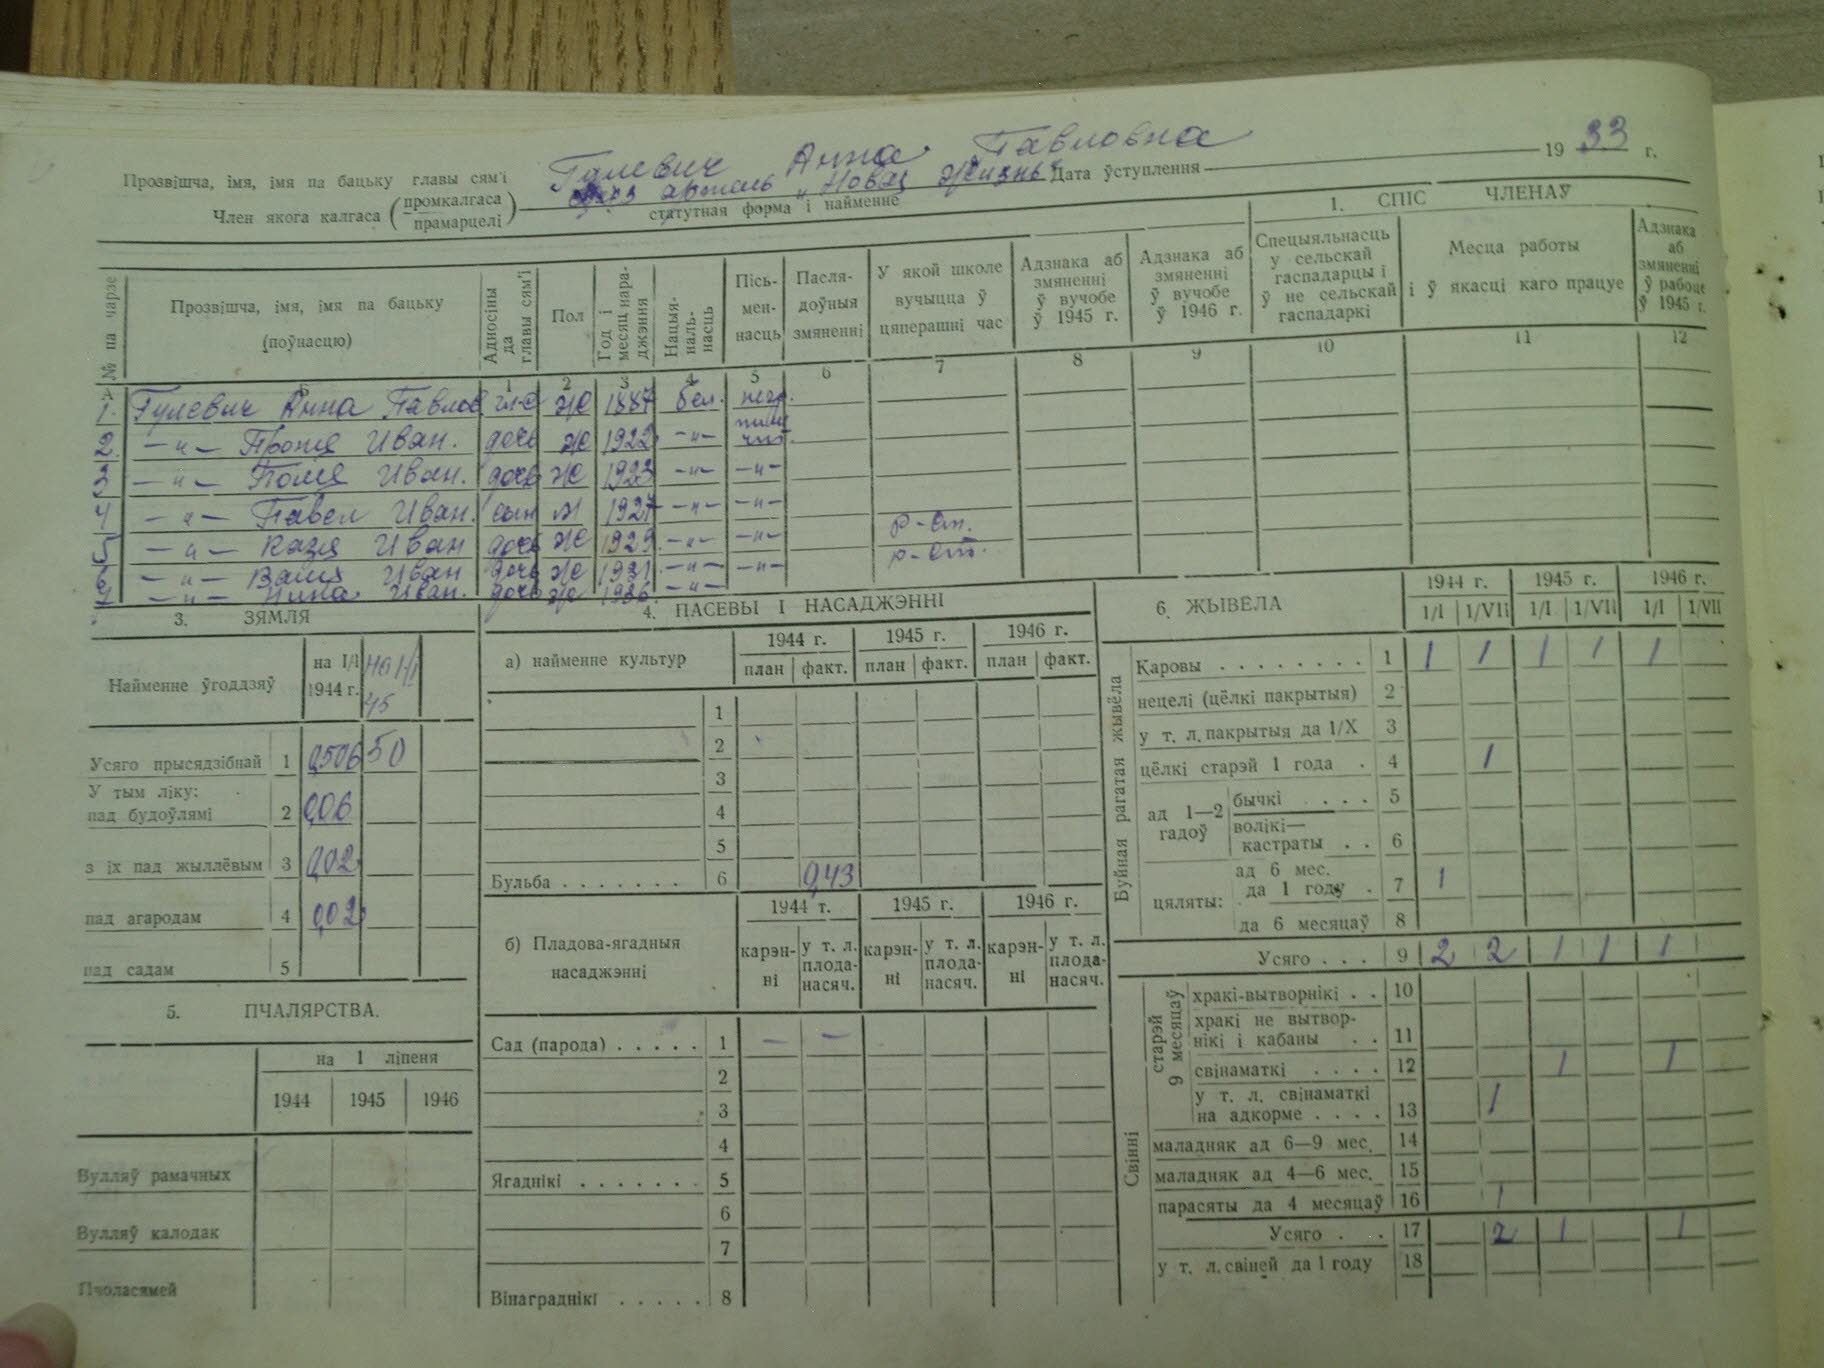 Прозвішча, імя, імя па бацьку главы сям'і Гулевич Анна Павловна
Член якога калгаса (промкалгаса прамарцелі) артель „Новая Жизнь" Дата ўступлення 19 33 г.
статутная форма і найменне
1. СПІС ЧЛЕНАЎ
№ па чарзе
Прозвішча, імя, імя па бацьку (поўнасцю)
Адносіны да главы сям'і
Пол
Год і месяц нараджэння
Нацыянальнасць
Пісьменнасць
Паслядоўныя змяненні
У якой школе вучыцца ў цяперашні час
Адзнака аб змяненні ў вучобе ў 1945 г.
Адзнака аб змяненні ў вучобе ў 1946 г.
Спецыяльнасць у сельскай гаспадарцы і ў не сельскай гаспадаркі
Месца работы і ў якасці каго працуе
Адзнака аб змяненні ў рабоце ў 1945 г.
А Б 1 2 3 4 5 6 7 8 9 10 11 12
1. Гулевич Анна Павлов гл-с ж 1887 бел. негр.
2. —"— Броня Иван. дочь ж 1922 —"—
3 —"— Поля Иван. дочь ж 1923 —"— —"—
4 —"— Павел Иван. сын м 1927 —"— —"—
5 —"— Казя Иван дочь ж 1929 —"— —"—
6 —"— Валя Иван дочь ж 1931 —"— —"—
7 —"— Нина Иван. дочь ж 1936 —"—
3. ЗЯМЛЯ
Найменне ўгоддзяў на I/I 1944 г. на 1/I 45
Усяго прысядзібнай 1 0,506 50
У тым ліку:
пад будоўлямі 2 0,06
з іх пад жыллёвым 3 0,02
пад агародам 4 0,02
пад садам 5
5. ПЧАЛЯРСТВА.
на 1 ліпеня
1944 1945 1946
Вулляў рамачных
Вулляў калодак
Пчоласямей
4. ПАСЕВЫ І НАСАДЖЭННІ
а) найменне культур
1944 г. 1945 г. 1946 г.
план факт. план факт. план факт.
1
2
3
4
5
Бульба . . . . . . . 6 0,43
б) Пладова-ягадныя насаджэнні
1944 г. 1945 г. 1946 г.
карэнні у т. л. плоданасяч. карэнні у т. л. плоданасяч. карэнні у т. л. плоданасяч.
Сад (парода) . . . . . 1 — —
2
3
4
Ягаднікі . . . . . . . 5
6
7
Вінаграднікі . . . . . 8
6. ЖЫВЁЛА
1944 г. 1945 г. 1946 г.
1/I 1/VII 1/I 1/VII 1/I 1/VII
Буйная рагатая жывёла
Каровы . . . . . . . . 1 1 1 1 1 1
нецелі (цёлкі пакрытыя) 2
у т. л. пакрытыя да 1/X 3
цёлкі старэй 1 года . 4 1
ад 1—2 гадоў
бычкі . . . . 5
волікі—кастраты . . 6
цяляты:
ад 6 мес. да 1 году . 7 1
да 6 месяцаў 8
Усяго . . . 9 2 2 1 1 1
Свінні
старэй 9 месяцаў
хракі-вытворнікі . . 10
хракі не вытворнікі і кабаны . . 11
свінаматкі . . . . 12 1 1
у т. л. свінаматкі на адкорме . . . . 13 1
маладняк ад 6—9 мес. 14
маладняк ад 4—6 мес. 15
парасяты да 4 месяцаў 16 1
Усяго . . . 17 2 1 1
у т. л. свіней да 1 году 18